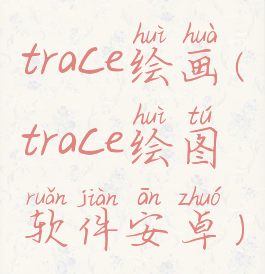 huì huà
trace绘画(
huì tú
trace绘图
ruǎn jiàn ān zhuó
软件安卓)